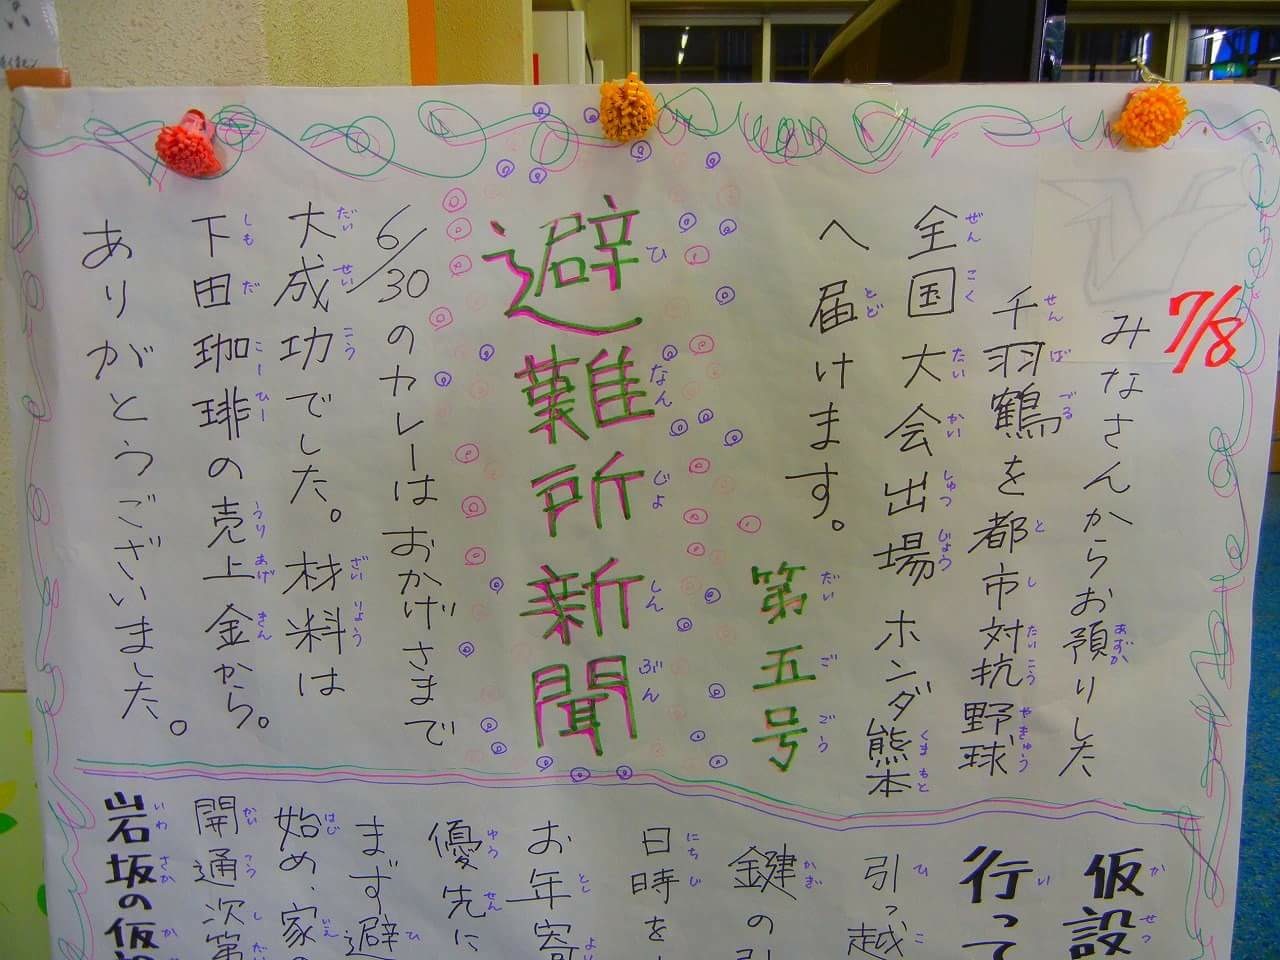 7/8
みなさんからお預りした
千羽鶴を都市対抗野球
全国大会出場 ホンダ熊本
へ届けます。
第五号
避難所新聞
6/30のカレーはおかげさまで
大成功でした。材料は
下田珈琲の売上金から。
ありがとうございました。
仮設
行って
引っ越
鍵の引
日時を
お年寄
優先に
まず避
始め、家
開通次第
岩坂の仮設